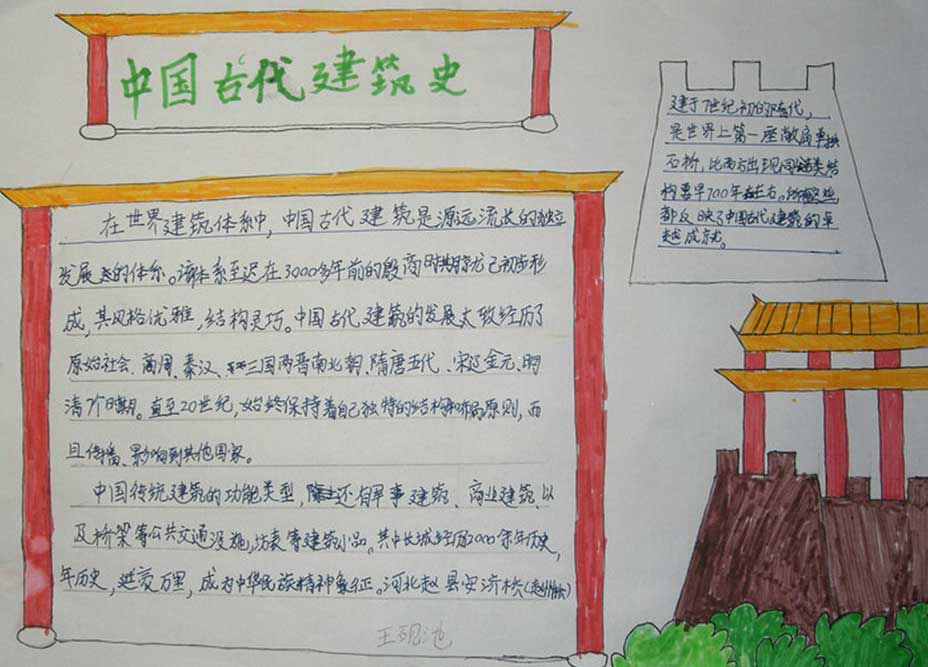 中国古代建筑史
在世界建筑体系中，中国古代建筑是源远流长的独立
发展态的体系。该体系至迟在3000多年前的殷商时期就已初步形
成，其风格优雅，结构灵巧。中国古代建筑的发展大致经历了
原始社会、商周、秦汉、三国两晋南北朝、隋唐五代、宋辽金元、明
清7个时期。直至20世纪，始终保持着自己独特的结构和布局原则，而
且传播、影响到其他国家。
中国传统建筑的功能类型，除还有军事建筑、商业建筑、以
及桥梁等公共交通设施，坊表等建筑小品。其中长城经历2000余年历史，
年历史，延袤万里，成为中华民族精神象征。河北赵县安济桥（赵州桥）
王砚池
建于7世纪初的隋代，
是世界上第一座敞肩单拱
石桥，比西方出现同类结
构要早700年左右。所有这些
都反映了中国古代建筑的卓
越成就。